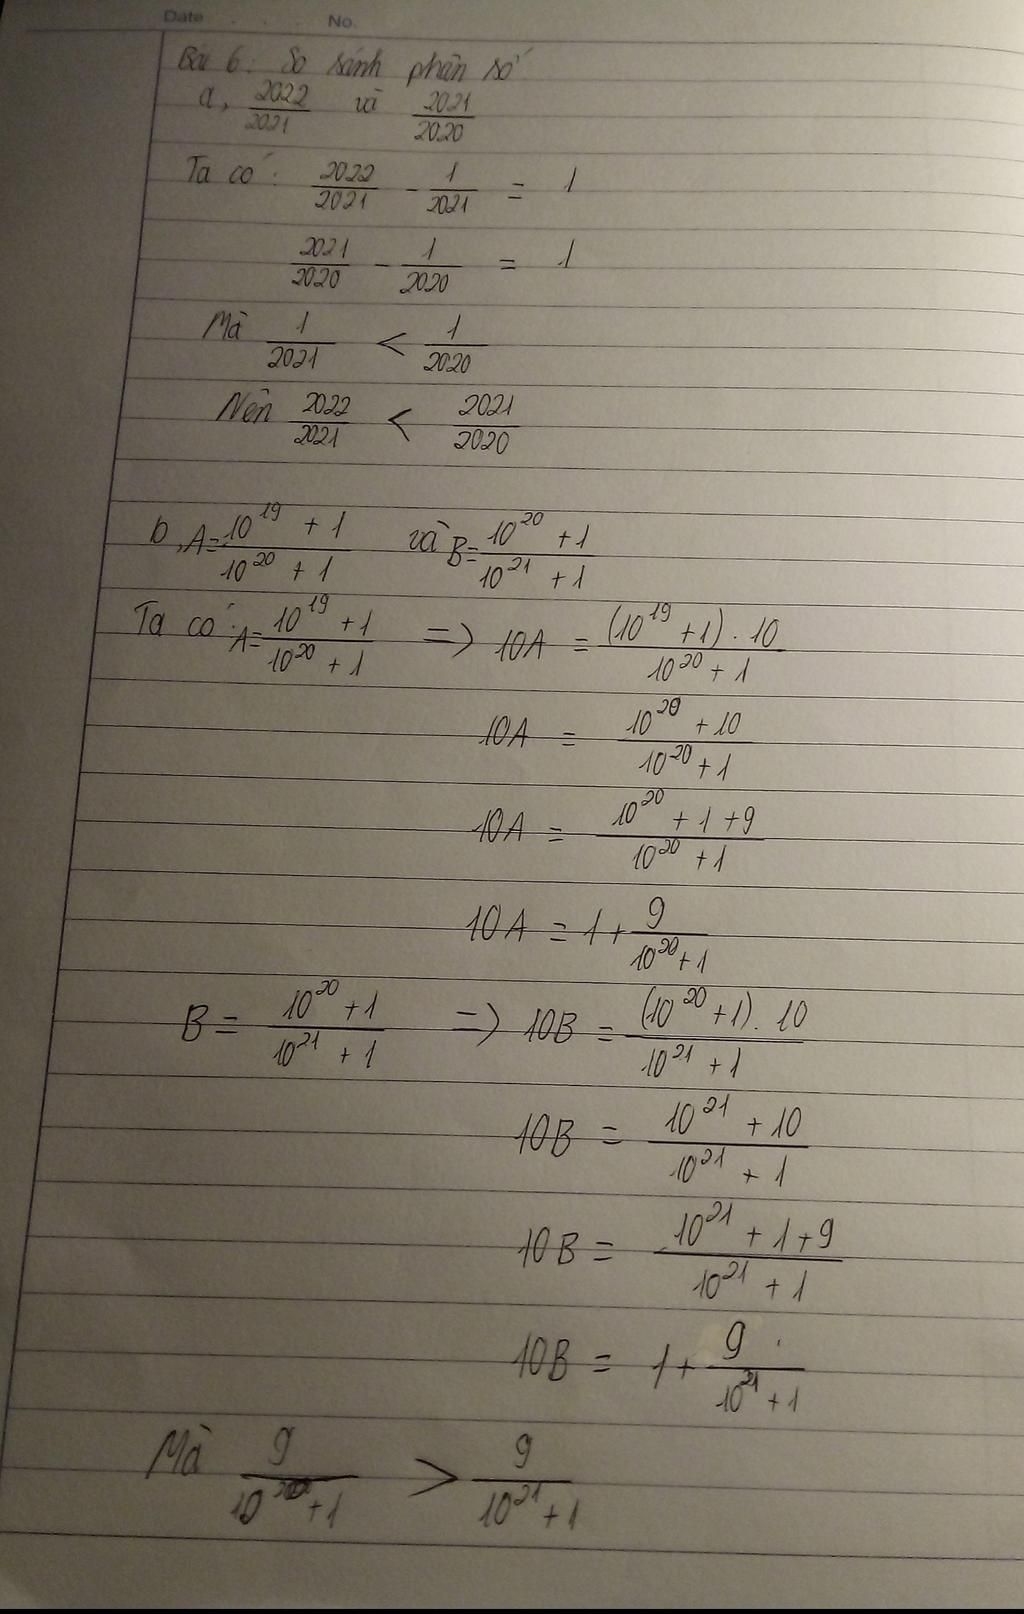 Date No.
Bài 6: So sánh phân số
a, 2022/2021 và 2021/2020
Ta có: 2022/2021 - 1/2021 = 1
2021/2020 - 1/2020 = 1
Mà 1/2021 < 1/2020
Nên 2022/2021 < 2021/2020
b, A = (10^19 + 1)/(10^20 + 1) và B = (10^20 + 1)/(10^21 + 1)
Ta có: A = (10^19 + 1)/(10^20 + 1) => 10A = ((10^19 + 1) . 10)/(10^20 + 1)
10A = (10^20 + 10)/(10^20 + 1)
10A = (10^20 + 1 + 9)/(10^20 + 1)
10A = 1 + 9/(10^20 + 1)
B = (10^20 + 1)/(10^21 + 1) => 10B = ((10^20 + 1) . 10)/(10^21 + 1)
10B = (10^21 + 10)/(10^21 + 1)
10B = (10^21 + 1 + 9)/(10^21 + 1)
10B = 1 + 9/(10^21 + 1)
Mà 9/(10^20 + 1) > 9/(10^21 + 1)